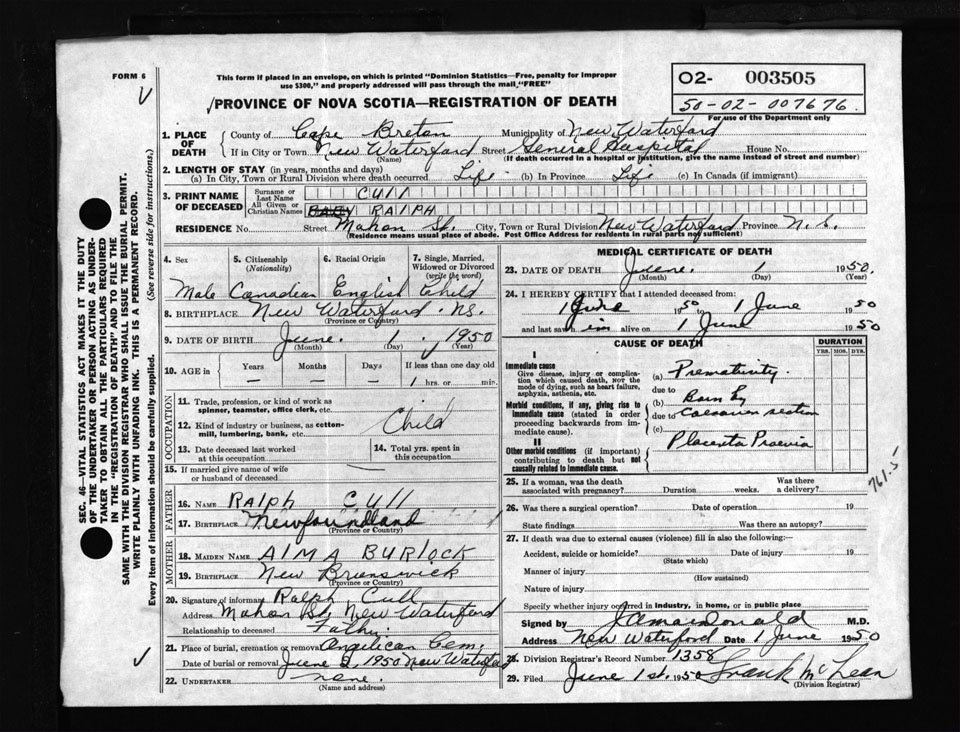 FORM 6
This form if placed in an envelope, on which is printed "Dominion Statistics—Free, penalty for improper
use $300," and properly addressed will pass through the mail "FREE"
PROVINCE OF NOVA SCOTIA—REGISTRATION OF DEATH
O2- 003505
50-02-007676
For use of the Department only
SEC. 46—VITAL STATISTICS ACT MAKES IT THE DUTY
OF THE UNDERTAKER OR PERSON ACTING AS UNDER-
TAKER TO OBTAIN ALL THE PARTICULARS REQUIRED
IN THE "REGISTRATION OF DEATH" AND TO FILE THE
SAME WITH THE DIVISION REGISTRAR WHO SHALL ISSUE THE BURIAL PERMIT.
WRITE PLAINLY WITH UNFADING INK. THIS IS A PERMANENT RECORD.
Every item of information should be carefully supplied. (See reverse side for instructions.)
1. PLACE OF DEATH
County of Cape Breton Municipality of New Waterford
If in City or Town New Waterford Street General Hospital House No.
(Name) (If death occurred in a hospital or institution, give the name instead of street and number)
2. LENGTH OF STAY (in years, months and days)
(a) In City, Town or Rural Division where death occurred Life (b) In Province Life (c) In Canada (if immigrant)
3. PRINT NAME OF DECEASED
Surname or Last Name CUll
All Given or Christian Names BABY RAlPH
RESIDENCE No. Street Mahon St. City, Town or Rural Division New Waterford Province N. S.
(Residence means usual place of abode. Post Office Address for residents in rural parts not sufficient)
4. Sex 5. Citizenship (Nationality) 6. Racial Origin 7. Single, Married, Widowed or Divorced (write the word)
Male Canadian English Child
8. BIRTHPLACE New Waterford NS.
(Province or Country)
9. DATE OF BIRTH June 1950
(Month) (Day) (Year)
10. AGE in Years Months Days If less than one day old
— — — 1 hrs. or min.
OCCUPATION
11. Trade, profession, or kind of work as
spinner, teamster, office clerk, etc.
12. Kind of industry or business, as cotton-
mill, lumbering, bank, etc.
Child
13. Date deceased last worked at this occupation
14. Total yrs. spent in this occupation
15. If married give name of wife or husband of deceased
FATHER
16. NAME RAlPH CUll
17. BIRTHPLACE Newfoundland
(Province or Country)
MOTHER
18. MAIDEN NAME AlMA BURlOCK
19. BIRTHPLACE New Brunswick
(Province or Country)
20. Signature of informant Ralph Cull
Address Mahon St, New Waterford
Relationship to deceased Father
21. Place of burial, cremation or removal Anglican Cem,
Date of burial or removal June 2, 1950 New Waterford
22. UNDERTAKER none.
(Name and address)
MEDICAL CERTIFICATE OF DEATH
23. DATE OF DEATH June 1 1950.
(Month) (Day)
24. I HEREBY CERTIFY that I attended deceased from:
1 June 1950 to 1 June 1950
and last saw him alive on 1 June 1950
CAUSE OF DEATH
DURATION
YRS. MOS. DYS.
I
Immediate cause
Give disease, injury or complica-
tion which caused death, NOT the
mode of dying, such as heart failure,
asphyxia, asthenia, etc.
(a) Prematurity.
due to
Morbid conditions, if any, giving rise to
immediate cause (stated in order
proceeding backwards from im-
mediate cause).
(b) Born by
due to Caesarian section
(c)
II
Other morbid conditions (if important)
contributing to death but not
causally related to immediate cause.
Placenta Praevia
761.5
25. If a woman, was the death
associated with pregnancy? Duration weeks. Was there a delivery?
26. Was there a surgical operation? Date of operation 19
State findings Was there an autopsy?
27. If death was due to external causes (violence) fill in also the following:—
Accident, suicide or homicide? Date of injury 19
(State which)
Manner of injury
(How sustained)
Nature of injury
Specify whether injury occurred in industry, in home, or in public place
Signed by M.D.
Address New Waterford Date 1 June 1950
28. Division Registrar's Record Number 1358
29. Filed June 1st. 1950 Frank McLean
(Division Registrar)